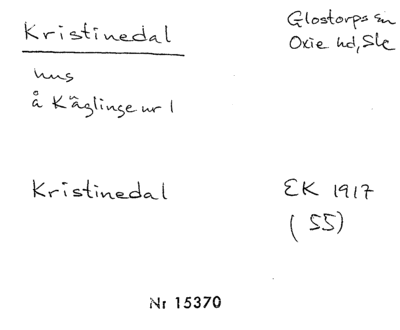 Kristinedal
Glostorps sn
Oxie hd, Sk
hus
å Käglinge nr 1
Kristinedal
EK 1917
(55)
Nr 15370